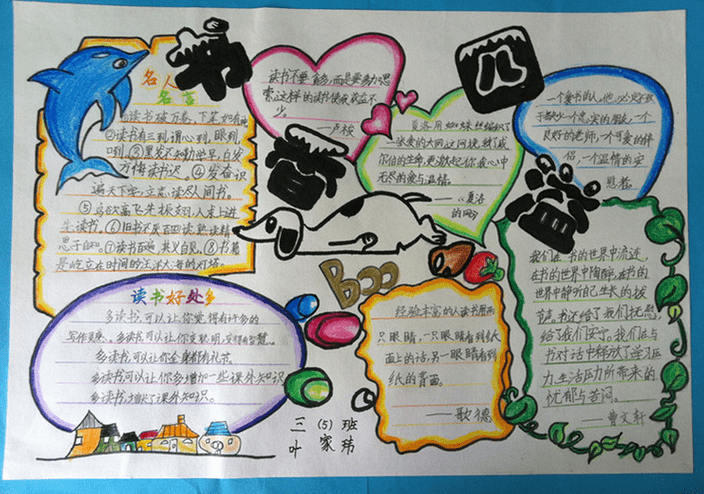 书
香
四
溢
名人
名言
①读书破万卷,下笔如有神
②读书有三到,谓心到,眼到
口到。③黑发不知勤学早,白首
方悔读书迟。④发奋识
遍天下字,立志读尽人间书。
⑤鸟欲高飞先振翅,人求上进
先读书。⑥旧书不厌百回读,熟读精
思子自知。⑦读书百遍,其义自见。⑧书籍
是屹立在时间的汪洋大海的灯塔。
读书不要贪多,而是要多加思
索,这样的读书使我获益不
少。
——卢梭
夏洛用蜘蛛丝编织了
一张爱的大网,这网挽救了威
尔伯的生命,更激起你我心中
无尽的爱与温情。
——《夏洛
的网》
一个爱书的人,他必定不致
于缺少一个忠实的朋友,一个
良好的老师,一个可爱的伴
侣,一个温情的安
慰者。
Boo
读书好处多
多读书,可以让你觉得有许多的
写作灵感。多读书可以让你变聪明,变得有智慧
多读书,可以让你全身都有礼节
多读书可以让你多增加一些课外知识
多读书,增长了课外知识。
经验丰富的人读书用两
只眼睛,一只眼睛看到纸
面上的话,另一眼睛看到
纸的背面。
——歌德
我们在书的世界中流连,
在书的世界中陶醉,在书的
世界中静听自己生长的拔
节声,书还给了我们抚慰,
给了我们安宁。我们在与
书对话中释放了学习压
力,生活压力所带来的
忧郁与苦闷。
——曹文轩
三(5)班
叶家玮